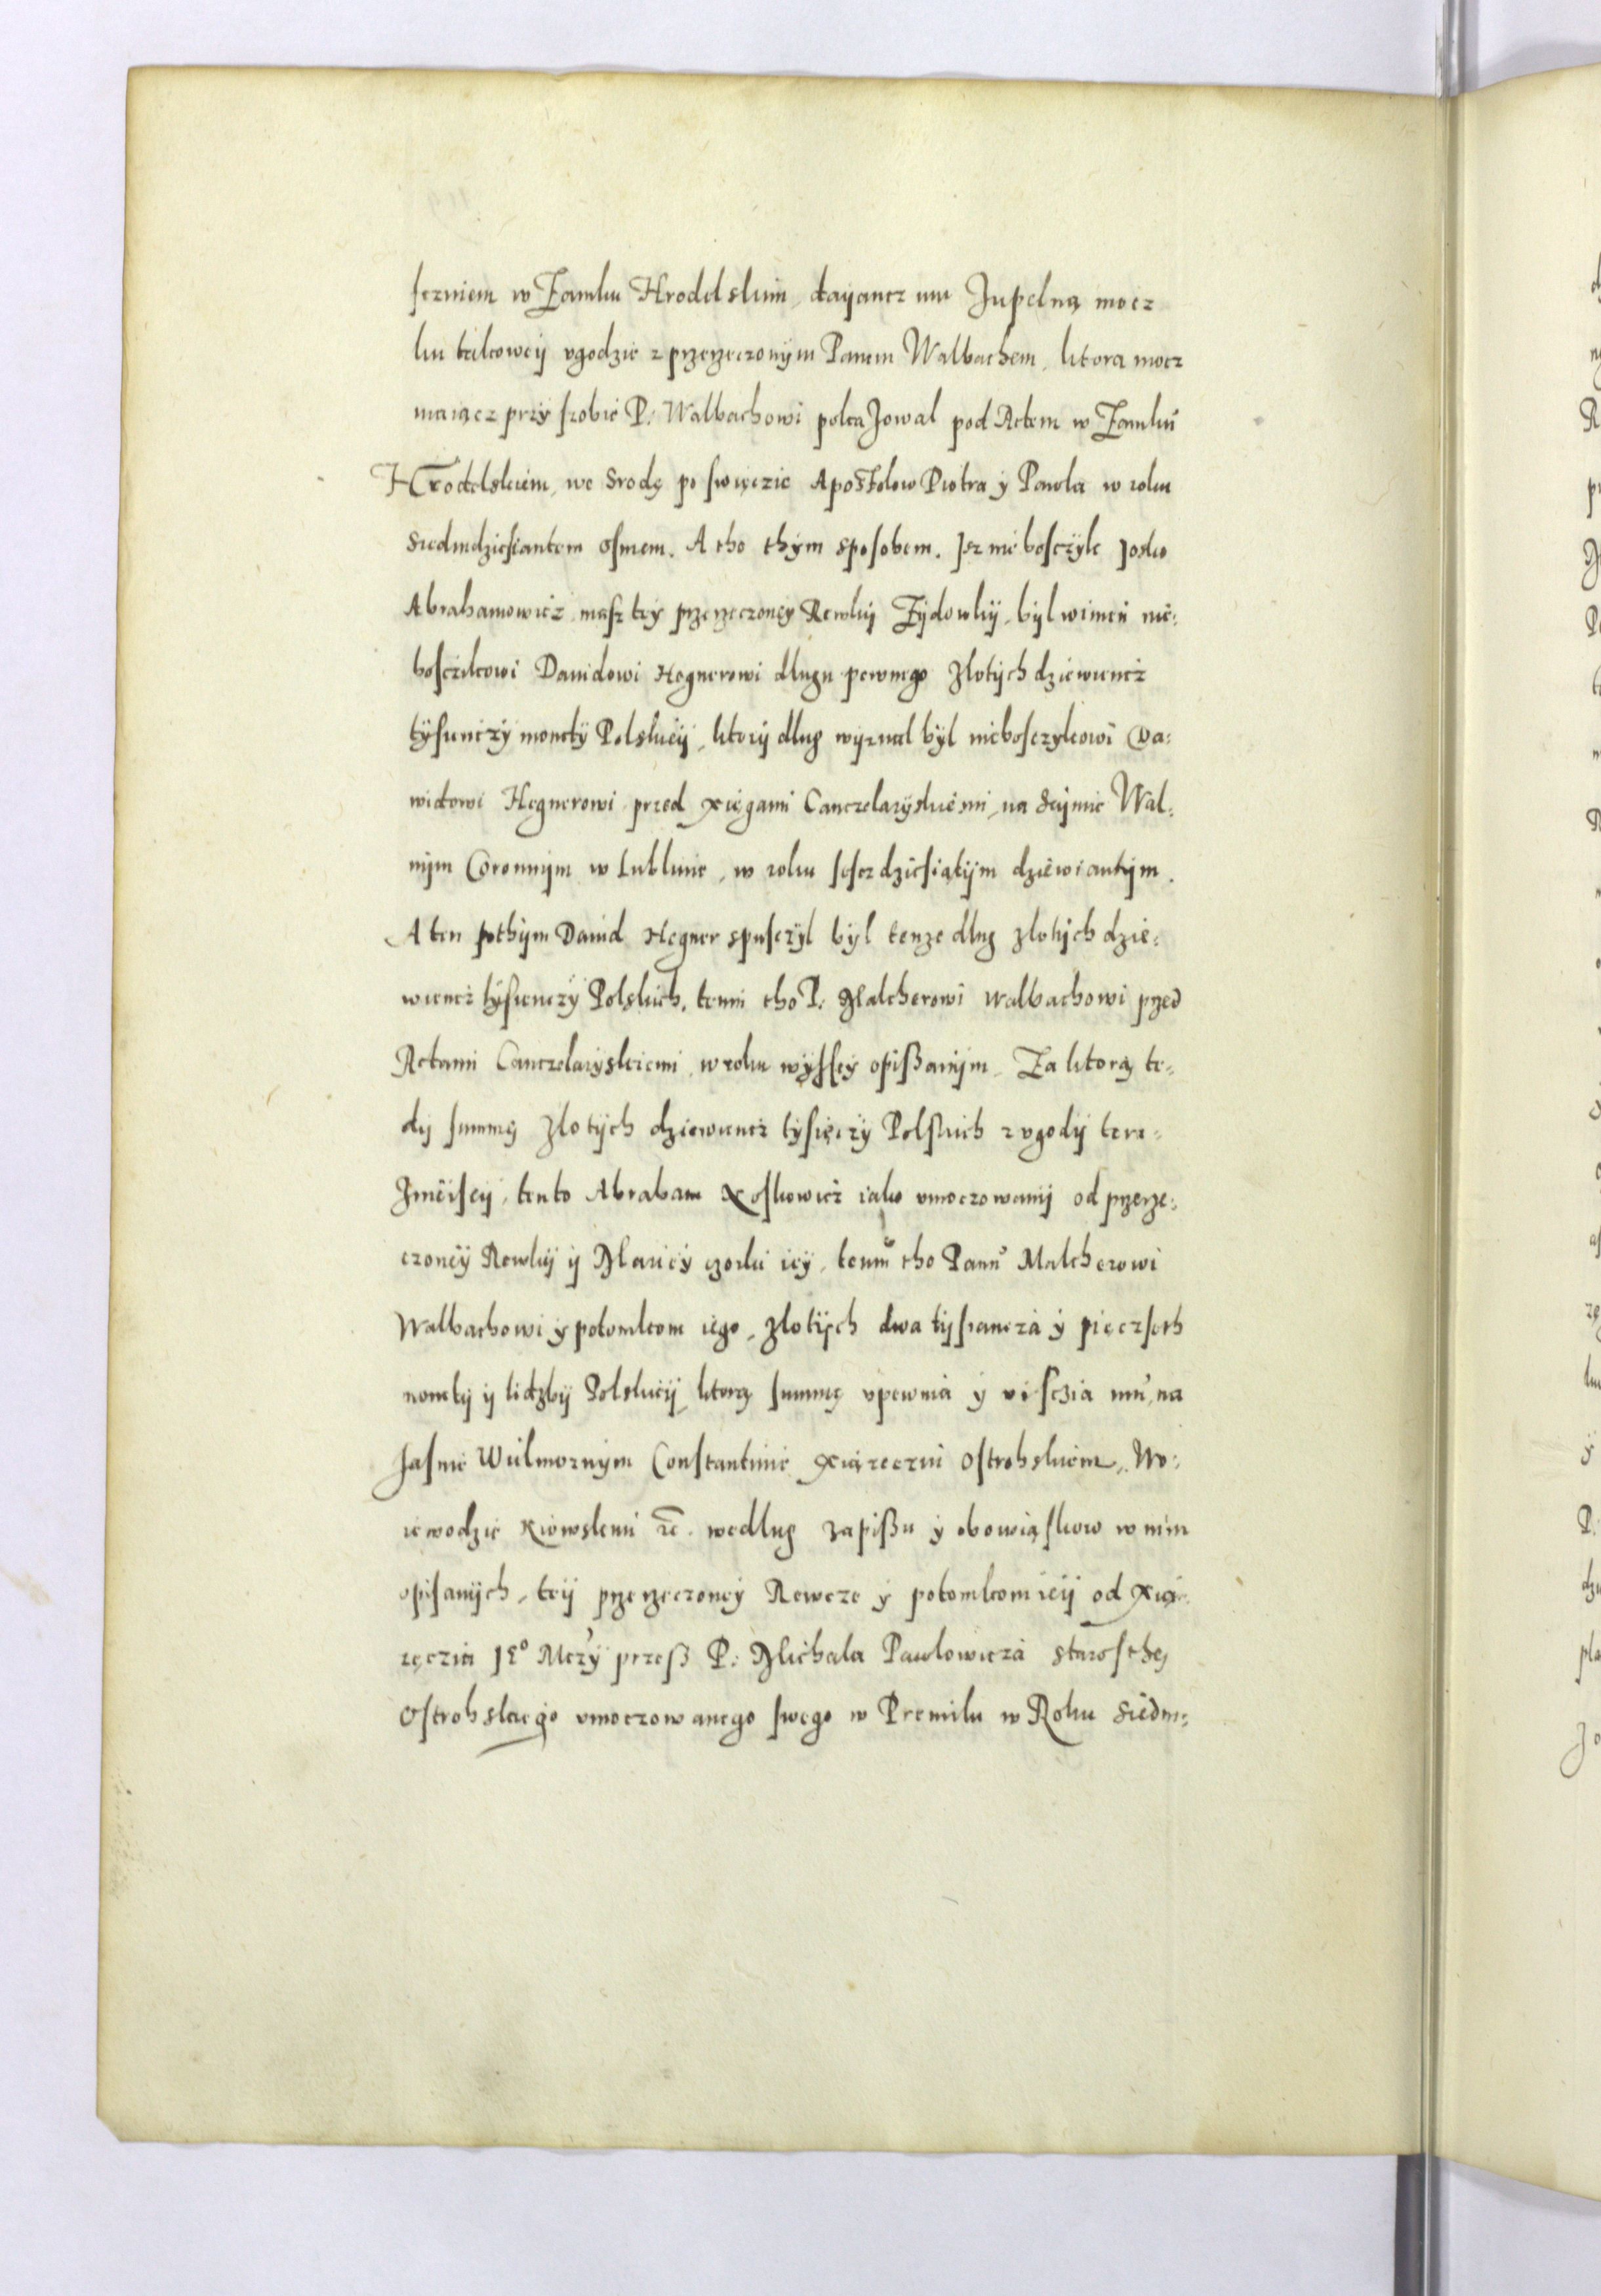 sczniem w Zamku Hrodelskim, dayancz mu Zupelną mocz
ku takowey vgodzie z przerzeczonym Panem Walbachem, ktora mocz
maiącz przy szobie P: Walbachowi pokazowal pod Actem w Zamku
Hrodelskiem, we Srodę po swięczie Apostolow Piotra y Pawla w roku
Siedmdziesiantem osmem. A tho thym sposobem. Jsz nieboszczyk Josko
Abrahamowicz masz tey przerzeczoney Rewky Zydowky, byl winien nie:
boszczikowi Dauidowi Hegnerowi dlugu pewnego Zlotych dziewiencz
tysienczy monety Polskiey, ktory dlug wyznal byl nieboszczykowi Da:
widowi Hegnerowi przed xięgami Canczelaryskiemi, na Seymie Wal:
nym Coronnym w Lublinie, w roku szesczdziesiątym dziewiantym.
A ten pothym Dauid Hegner spusczyl byl tenze dlug zlotych dzie:
wiencz tysienczy Polskich, temu tho P: Malcherowi Walbachowi przed
Actami Canczelaryskiemi, w roku wyssey opißanym. Za ktorą te:
dy summę Zlotych dziewiencz tysięczy Polskich z vgody tera:
Znieisey, tento Abraham Joskowicz iako vmoczowany od przerze:
czoney Rewky y Mariey czorki iey, temu tho Panu Malcherowi
Walbachowi y potomkom iego, zlotych dwa tysiancza y pięczseth
monety y liczby Polskiey, ktorą summę vpewnia y visczia mu, na
Jasnie Wielmoznym Constantinie Xiązeczni Ostrohskiem, Wo:
iewodzie Kiowskim etc. wedlug zapißu y obowiąskow w nim
opisanych, tey przerzeczoney Rewcze y potomkom iey od Xią:
zęczia Je° Mczy przeß P: Michala Pawlowicza starosthę
Ostrohskiego vmoczowanego swego w Premilu w Roku Siedm: